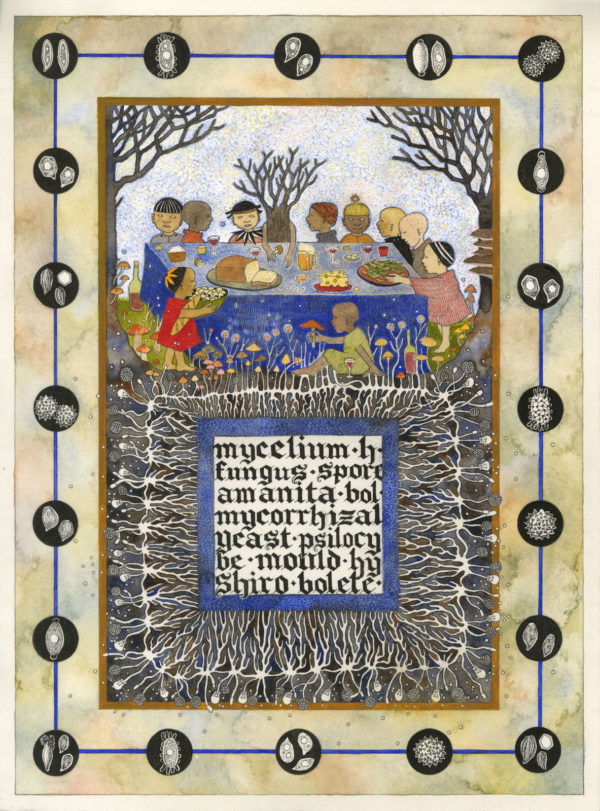 mycelium·h·
fungus·spore
amanita·bol
mycorrhizal
yeast·psilocy
be·mould·hy
shiro·bolete·